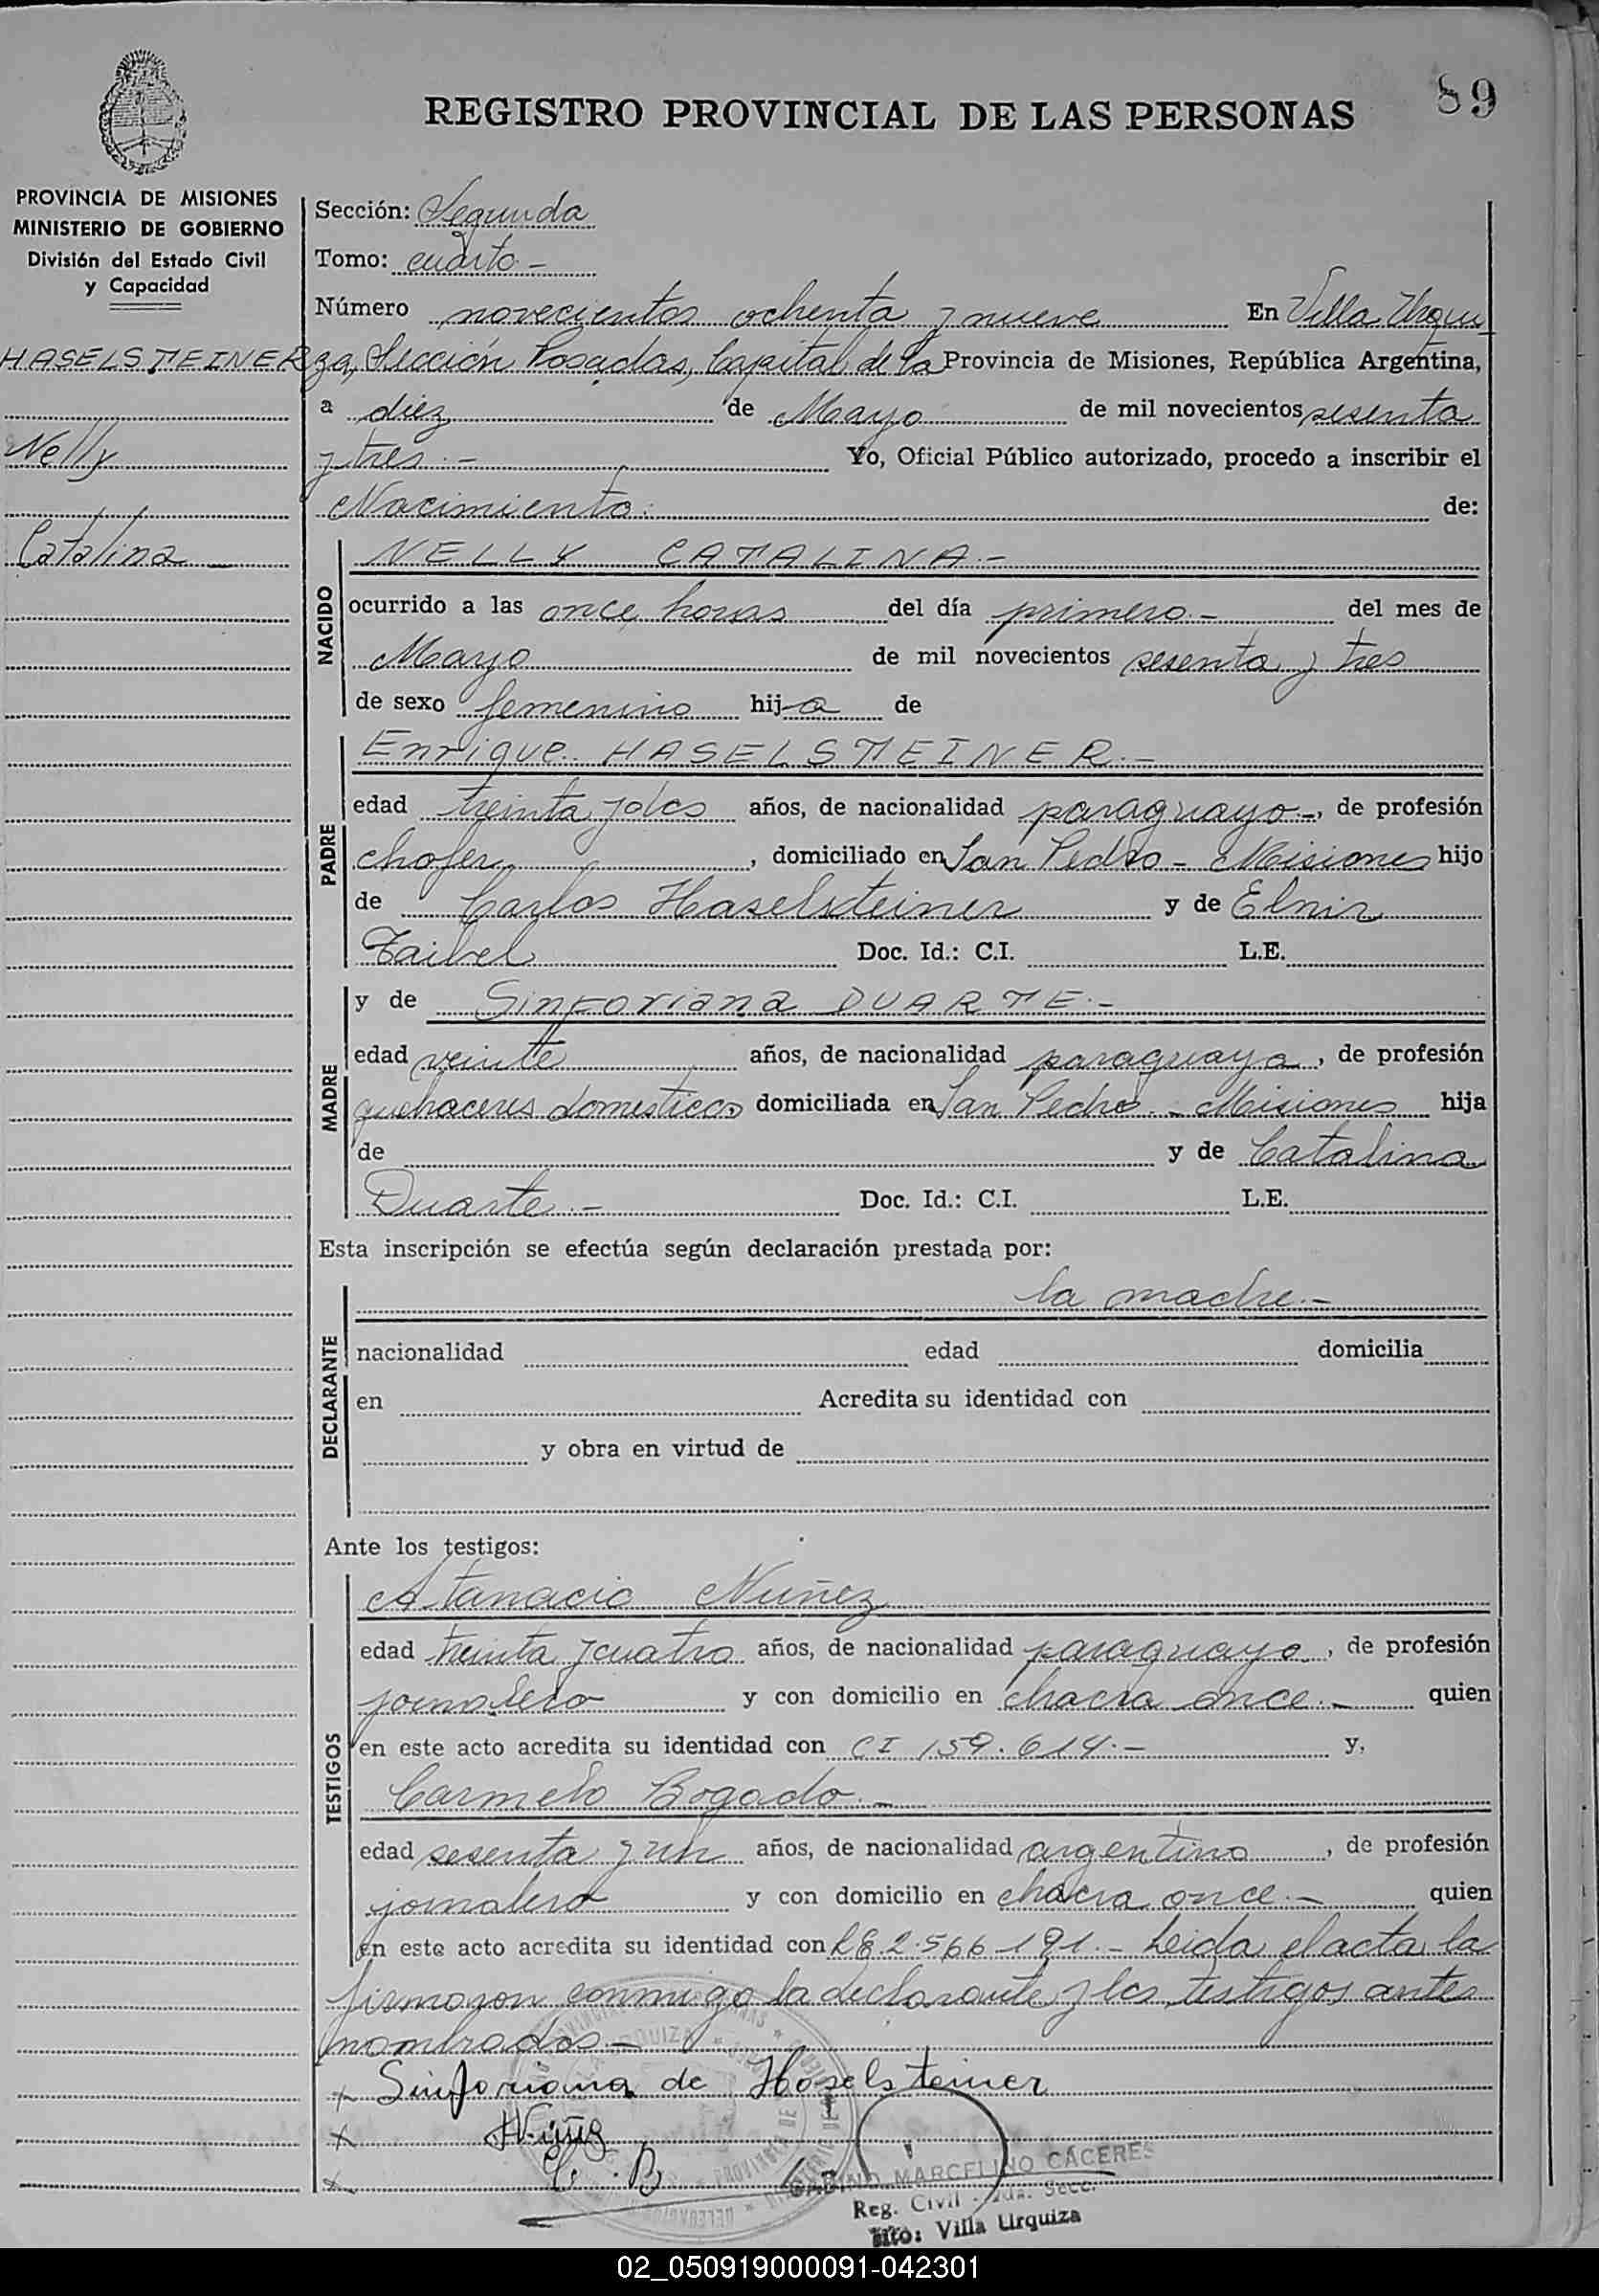 89
REGISTRO PROVINCIAL DE LAS PERSONAS
PROVINCIA DE MISIONES
MINISTERIO DE GOBIERNO
División del Estado Civil
y Capacidad
HASELSTEINER
Nelly
Catalina
Sección: Segunda
Tomo: cuarto -
Número novecientos ochenta y nueve En Villa Urqui
za, Sección Posadas, Capital de la Provincia de Misiones, República Argentina,
a diez de Mayo de mil novecientos sesenta
y tres.- Yo, Oficial Público autorizado, procedo a inscribir el
Nacimiento. de:
NACIDO
NELLY CATALINA.-
ocurrido a las once horas del día primero.- del mes de
Mayo de mil novecientos sesenta y tres
de sexo femenino hija de
PADRE
Enrique HASELSTEINER.-
edad treinta y dos años, de nacionalidad paraguayo-, de profesión
chofer, domiciliado en San Pedro - Misiones hijo
de Carlos Haselsteiner y de Elnir
Taibel Doc. Id.: C.I. L.E.
MADRE
y de Sinforiana DUARTE.-
edad veinte años, de nacionalidad paraguaya, de profesión
quehaceres domesticos domiciliada en San Pedro.- Misiones hija
de y de Catalina
Duarte.- Doc. Id.: C.I. L.E.
Esta inscripción se efectúa según declaración prestada por:
DECLARANTE
la madre.-
nacionalidad edad domicilia
en Acredita su identidad con
y obra en virtud de
Ante los testigos:
TESTIGOS
Atanacio Nuñez
edad treinta y cuatro años, de nacionalidad paraguayo, de profesión
jornalero y con domicilio en chacra once.- quien
en este acto acredita su identidad con CI 159.614.- y,
Carmelo Bogado.-
edad sesenta y un años, de nacionalidad argentino, de profesión
jornalero y con domicilio en chacra once.- quien
en este acto acredita su identidad con LE.2.566.191.- Leida el acta la
firmaron conmigo la declarante y los testigos antes
nombrados.-
x Sinforiana de Haselsteiner
x Nuñez
x C. B
SABINO MARCELINO CÁCERES
Reg. Civil Secc.
Villa Urquiza
02_050919000091-042301